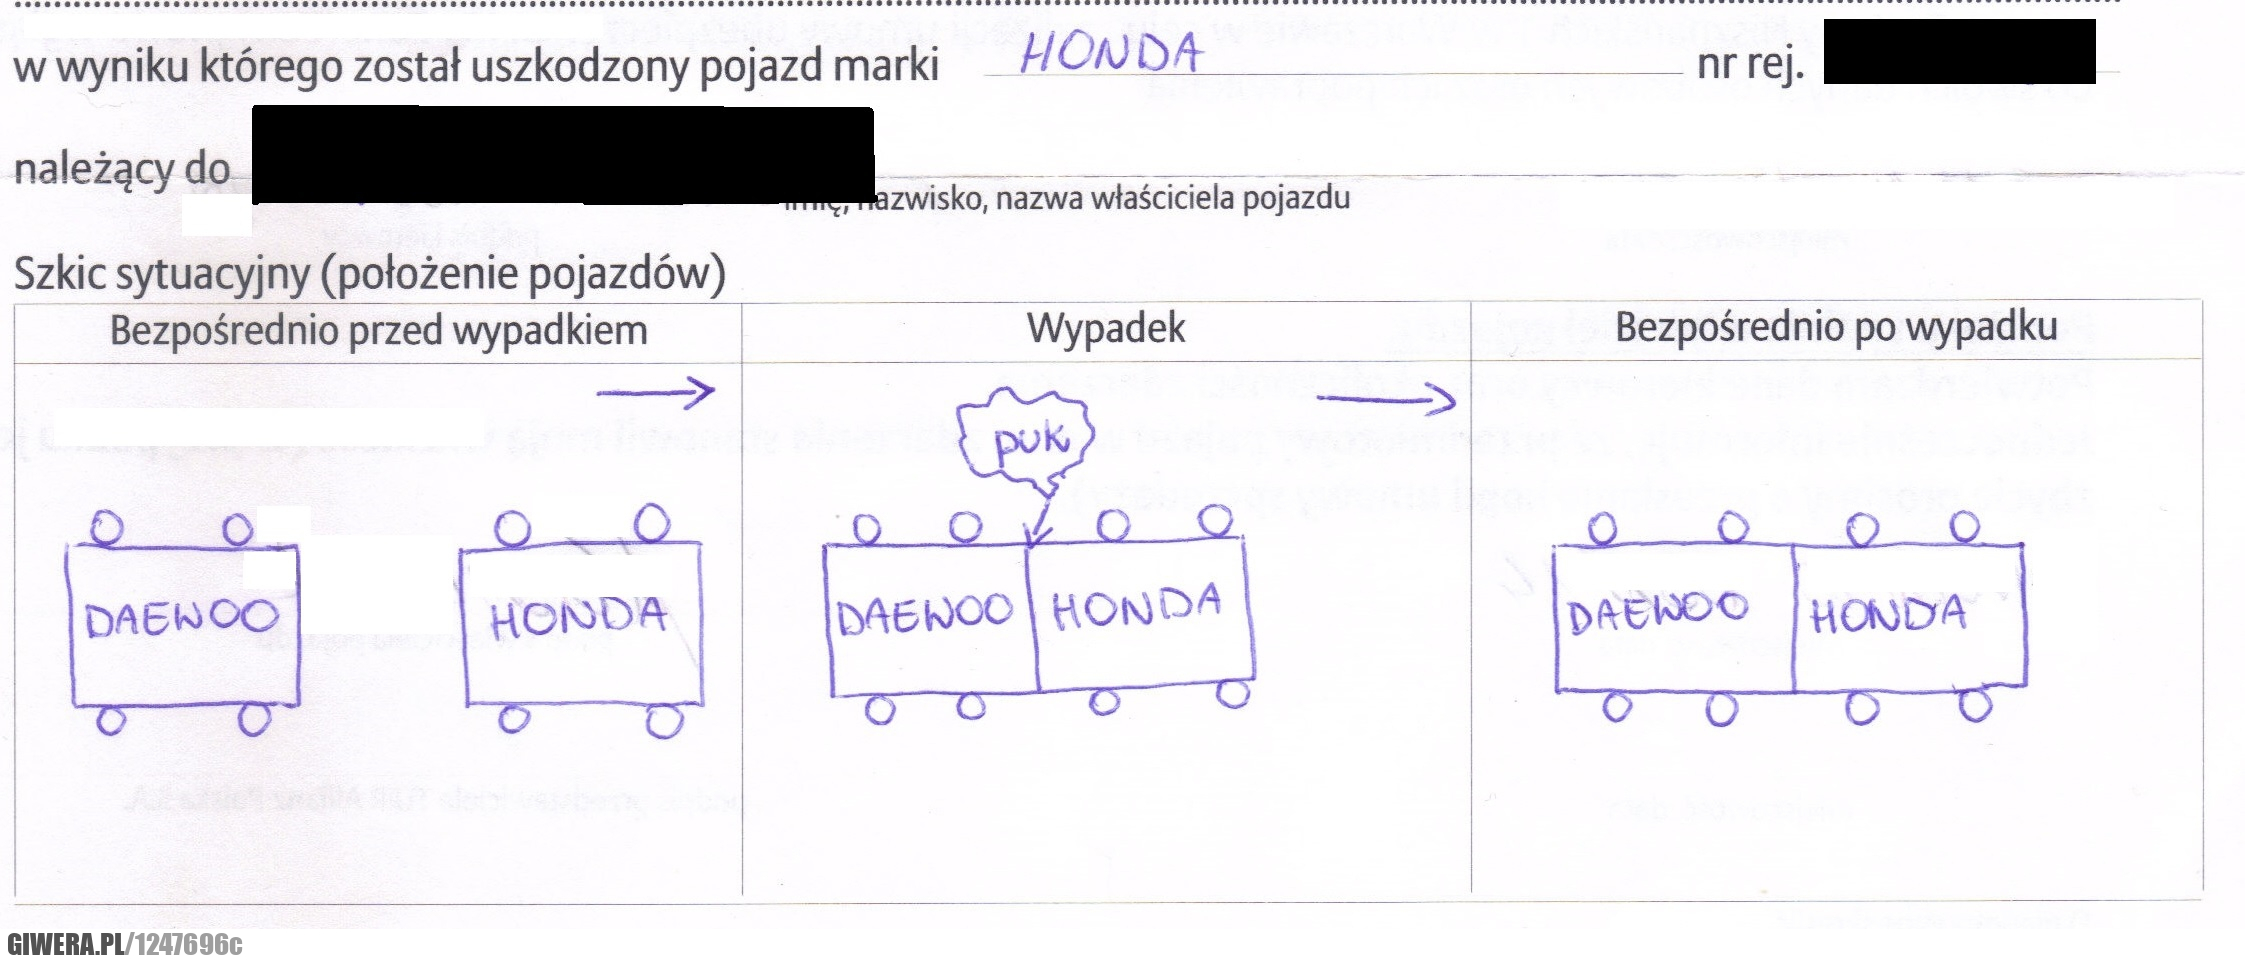 w wyniku którego został uszkodzony pojazd marki HONDA nr rej.
należący do
imię, nazwisko, nazwa właściciela pojazdu
Szkic sytuacyjny (położenie pojazdów)
Bezpośrednio przed wypadkiem Wypadek Bezpośrednio po wypadku
puk
DAEWOO HONDA DAEWOO HONDA DAEWOO HONDA
GIWERA.PL/1247696c